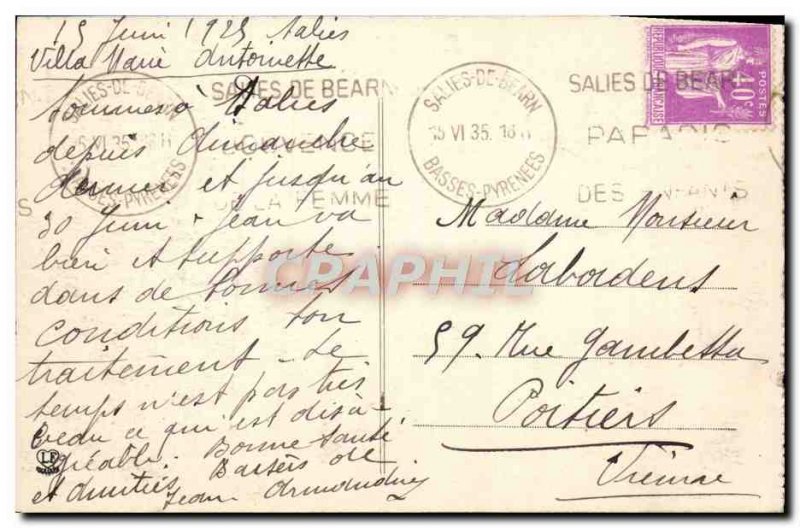 15 Juin 1935 Salies
Villa Marie Antoinette
Sommes à Salies
depuis dimanche
dernier et jusqu'au
30 Juin. Jean va
bien et supporte
dans de bonnes
conditions son
traitement. Le
temps n'est pas très
beau ce qui est désa-
gréable. Bonne santé
Baisers de
et amitiés
Jean
SALIES DE BEARN
DE LA FEMME
SALIES-DE-BEARN
15 VI 35
BASSES-PYRENEES
SALIES-DE-BEARN
BASSES-PYRENEES
SALIES DE BEARN
PARADIS
DES ENFANTS
REPUBLIQUE FRANÇAISE
POSTES
40c
Madame Monsieur
Labordens
59. Rue Gambetta
Poitiers
Vienne
CPAPHIL